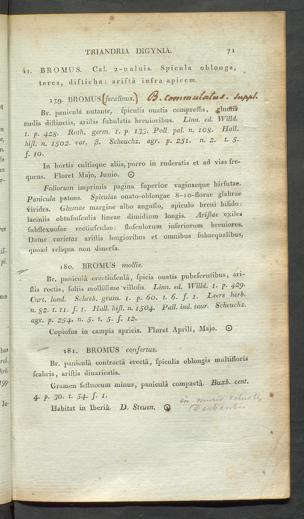 TRIANDRIA DIGYNIA. 71
41. BROMUS. Cal. 2-ualuis. Spicula oblonga,
teres, disticha: aristâ infra apicem.
179. BROMUS (secalinus.) B. commutatus. suppl.
Br. paniculâ nutante, spiculis ouatis compressis, glumis
nudis distinctis, aristis subulatis breuioribus. Linn. ed. Willd.
1. p. 428. Roth. germ. 1. p. 133. Poll. pal. n. 103. Hall.
hist. n. 1502. var. β. Scheuchz. agr. p. 251. n. 2. t. 5.
f. 10.
In hortis cultisque aliis, porro in ruderatis et ad vias fre-
quens. Floret Majo, Junio. ⊙
Foliorum imprimis pagina superior vaginaeque hirsutae.
Panicula patens. Spiculae ouato-oblongae 8-10-florae glabrae
virides. Glumae margine albo angusto, apiculo breui bifido:
laciniis obtusiusculis lineae dimidium longis. Aristae exiles
subflexuosae rectiusculae: flosculorum inferiorum breuiores.
Datur varietas aristis longioribus et omnibus subaequalibus,
quoad reliqua non diuersa.
180. BROMUS mollis.
Br. paniculâ erectiusculâ, spicis ouatis pubescentibus, ari-
stis rectis, foliis mollissime villosis. Linn. ed. Willd. 1. p. 429.
Curt. lond. Schreb. gram. 1. p. 60. t. 6. f. 1. Leers herb.
n. 92. t. 11. f. 1. Hall. hist. n. 1504. Pall. ind. taur. Scheuchz.
agr. p. 254. n. 5. t. 5. f. 12.
Copiosus in campis apricis. Floret Aprili, Majo. ⊙
181. BROMUS confertus.
Br. paniculâ contractâ erectâ, spiculis oblongis multifloris
scabris, aristis diuaricatis.
Gramen festuceum minus, paniculâ compactâ. Buxb. cent.
4. p. 30. t. 54. f. 1.
Habitat in Iberiâ. D. Steuen. ⊙
in muris
Derbentis